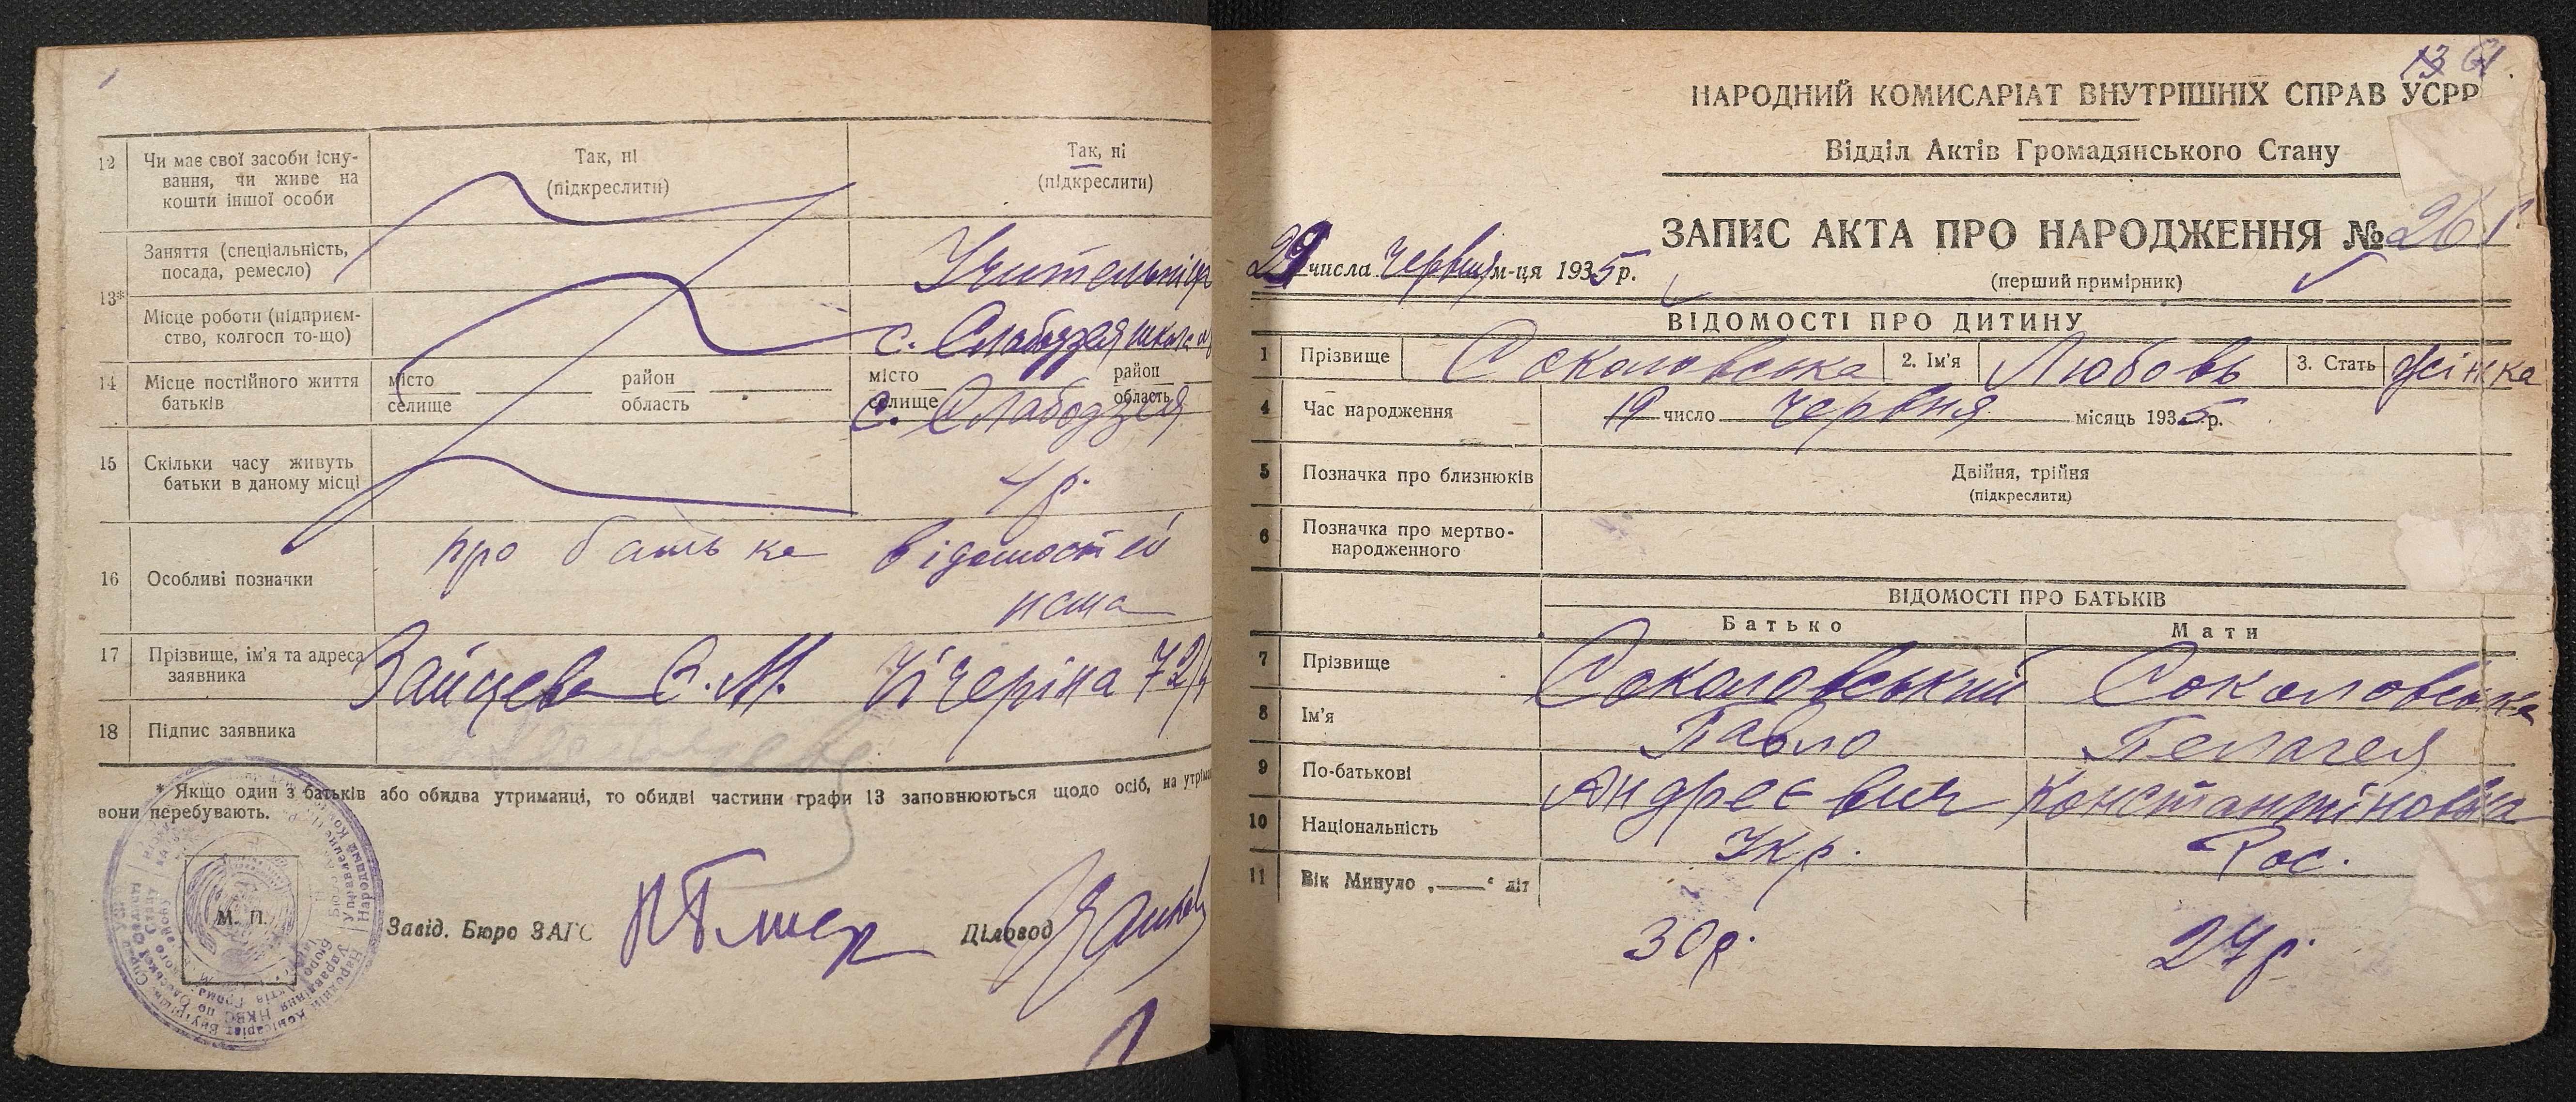 12 Чи має свої засоби існу-
вання, чи живе на
кошти іншої особи
Так, ні
(підкреслити)
Так, ні
(підкреслити)
13*
Заняття (спеціальність,
посада, ремесло)
Учительниця
Місце роботи (підприєм-
ство, колгосп то-що)
с. Слабодзея школа
14 Місце постійного життя
батьків
місто район
селище область
місто район
селище область
с. Слабодзея
15 Скільки часу живуть
батьки в даному місці
16 Особливі позначки
про батька відомостей
нема
17 Прізвище, ім'я та адреса
заявника
Зайцева Є. М. Чічеріна 72/
18 Підпис заявника
* Якщо один з батьків або обидва утриманці, то обидві частини графи 13 заповнюються щодо осіб, на
вони перебувають.
М. П.
Завід. Бюро ЗАГС
Діловод
13 61
НАРОДНИЙ КОМИСАРІАТ ВНУТРІШНІХ СПРАВ УСРР
Відділ Актів Громадянського Стану
ЗАПИС АКТА ПРО НАРОДЖЕННЯ № 261
29 числа Червня м-ця 1935 р.
(перший примірник)
ВІДОМОСТІ ПРО ДИТИНУ
1 Прізвище Соколовська 2. Ім'я Любовь 3. Стать жінка
4 Час народження 19 число червня місяць 1935 р.
5 Позначка про близнюків Двійня, трійня
(підкреслити)
6 Позначка про мертво-
народженного
ВІДОМОСТІ ПРО БАТЬКІВ
Батько Мати
7 Прізвище Соколовський Соколовська
8 Ім'я Павло Пелагея
9 По-батькові Андреєвич Константіновна
10 Національність Укр. Рос.
11 Вік Минуло „——“ літ
30 р. 27 р.